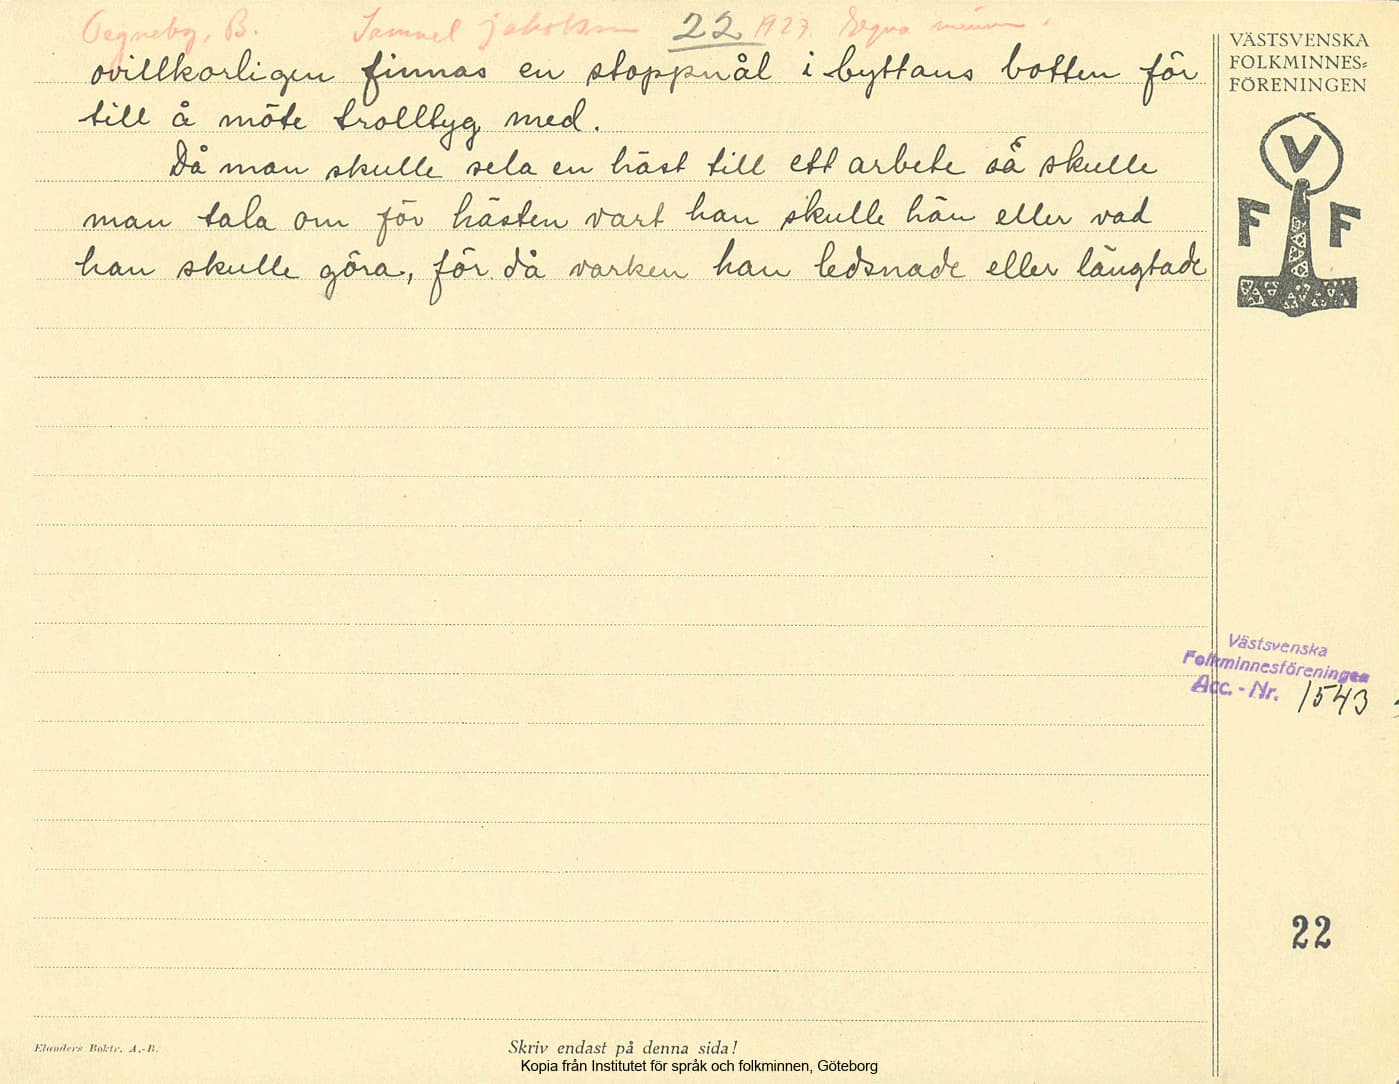 Tegneby, B. Samuel Jakobsson 22 1927 Egna minnen.
ovillkorligen finnas en stoppnål i byttans botten för
till å möte trolltyg med.
Då man skulle sela en häst till ett arbete så skulle
man tala om för hästen vart han skulle hän eller vad
han skulle göra, för då varken han ledsnade eller längtade
VÄSTSVENSKA
FOLKMINNES=
FÖRENINGEN
V
F F
Västsvenska
Folkminnesföreningen
Acc. - Nr. 1543
22
Elanders Boktr. A.-B.
Skriv endast på denna sida!
Kopia från Institutet för språk och folkminnen, Göteborg